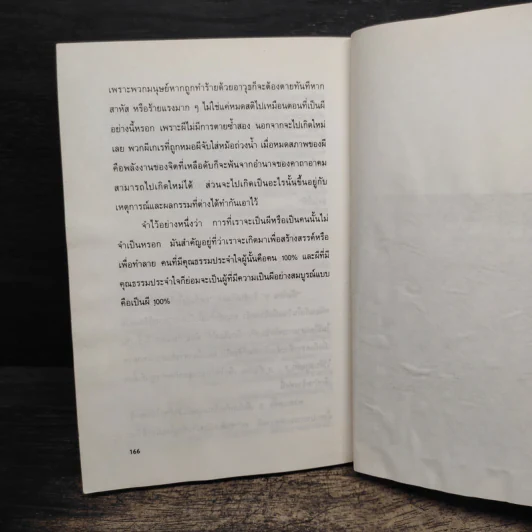 เพราะพวกมนุษย์หากถูกทำร้ายด้วยอาวุธก็จะต้องตายทันทีหาก
สาหัส หรือร้ายแรงมาก ๆ ไม่ใช่แค่หมดสติไปเหมือนตอนที่เป็นผี
อย่างนี้หรอก เพราะผีไม่มีการตายซ้ำสอง นอกจากจะไปเกิดใหม่
เลย พวกผีเกเรที่ถูกหมอผีจับใส่หม้อถ่วงน้ำ เมื่อหมดสภาพของผี
คือพลังงานของจิตที่เหลือดับก็จะพ้นจากอำนาจของคาถาอาคม
สามารถไปเกิดใหม่ได้ ส่วนจะไปเกิดเป็นอะไรนั้นขึ้นอยู่กับ
เหตุการณ์และผลกรรมที่ต่างได้ทำกันเอาไว้
จำไว้อย่างหนึ่งว่า การที่เราจะเป็นผีหรือเป็นคนนั้นไม่
จำเป็นหรอก มันสำคัญอยู่ที่ว่าเราจะเกิดมาเพื่อสร้างสรรค์หรือ
เพื่อทำลาย คนที่มีคุณธรรมประจำใจผู้นั้นคือคน 100% และผีที่มี
คุณธรรมประจำใจก็ย่อมจะเป็นผู้ที่มีความเป็นผีอย่างสมบูรณ์แบบ
คือเป็นผี 100%
166